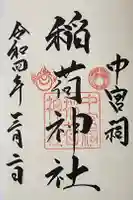 中宮祠
稲荷神社
令和四年三月二日